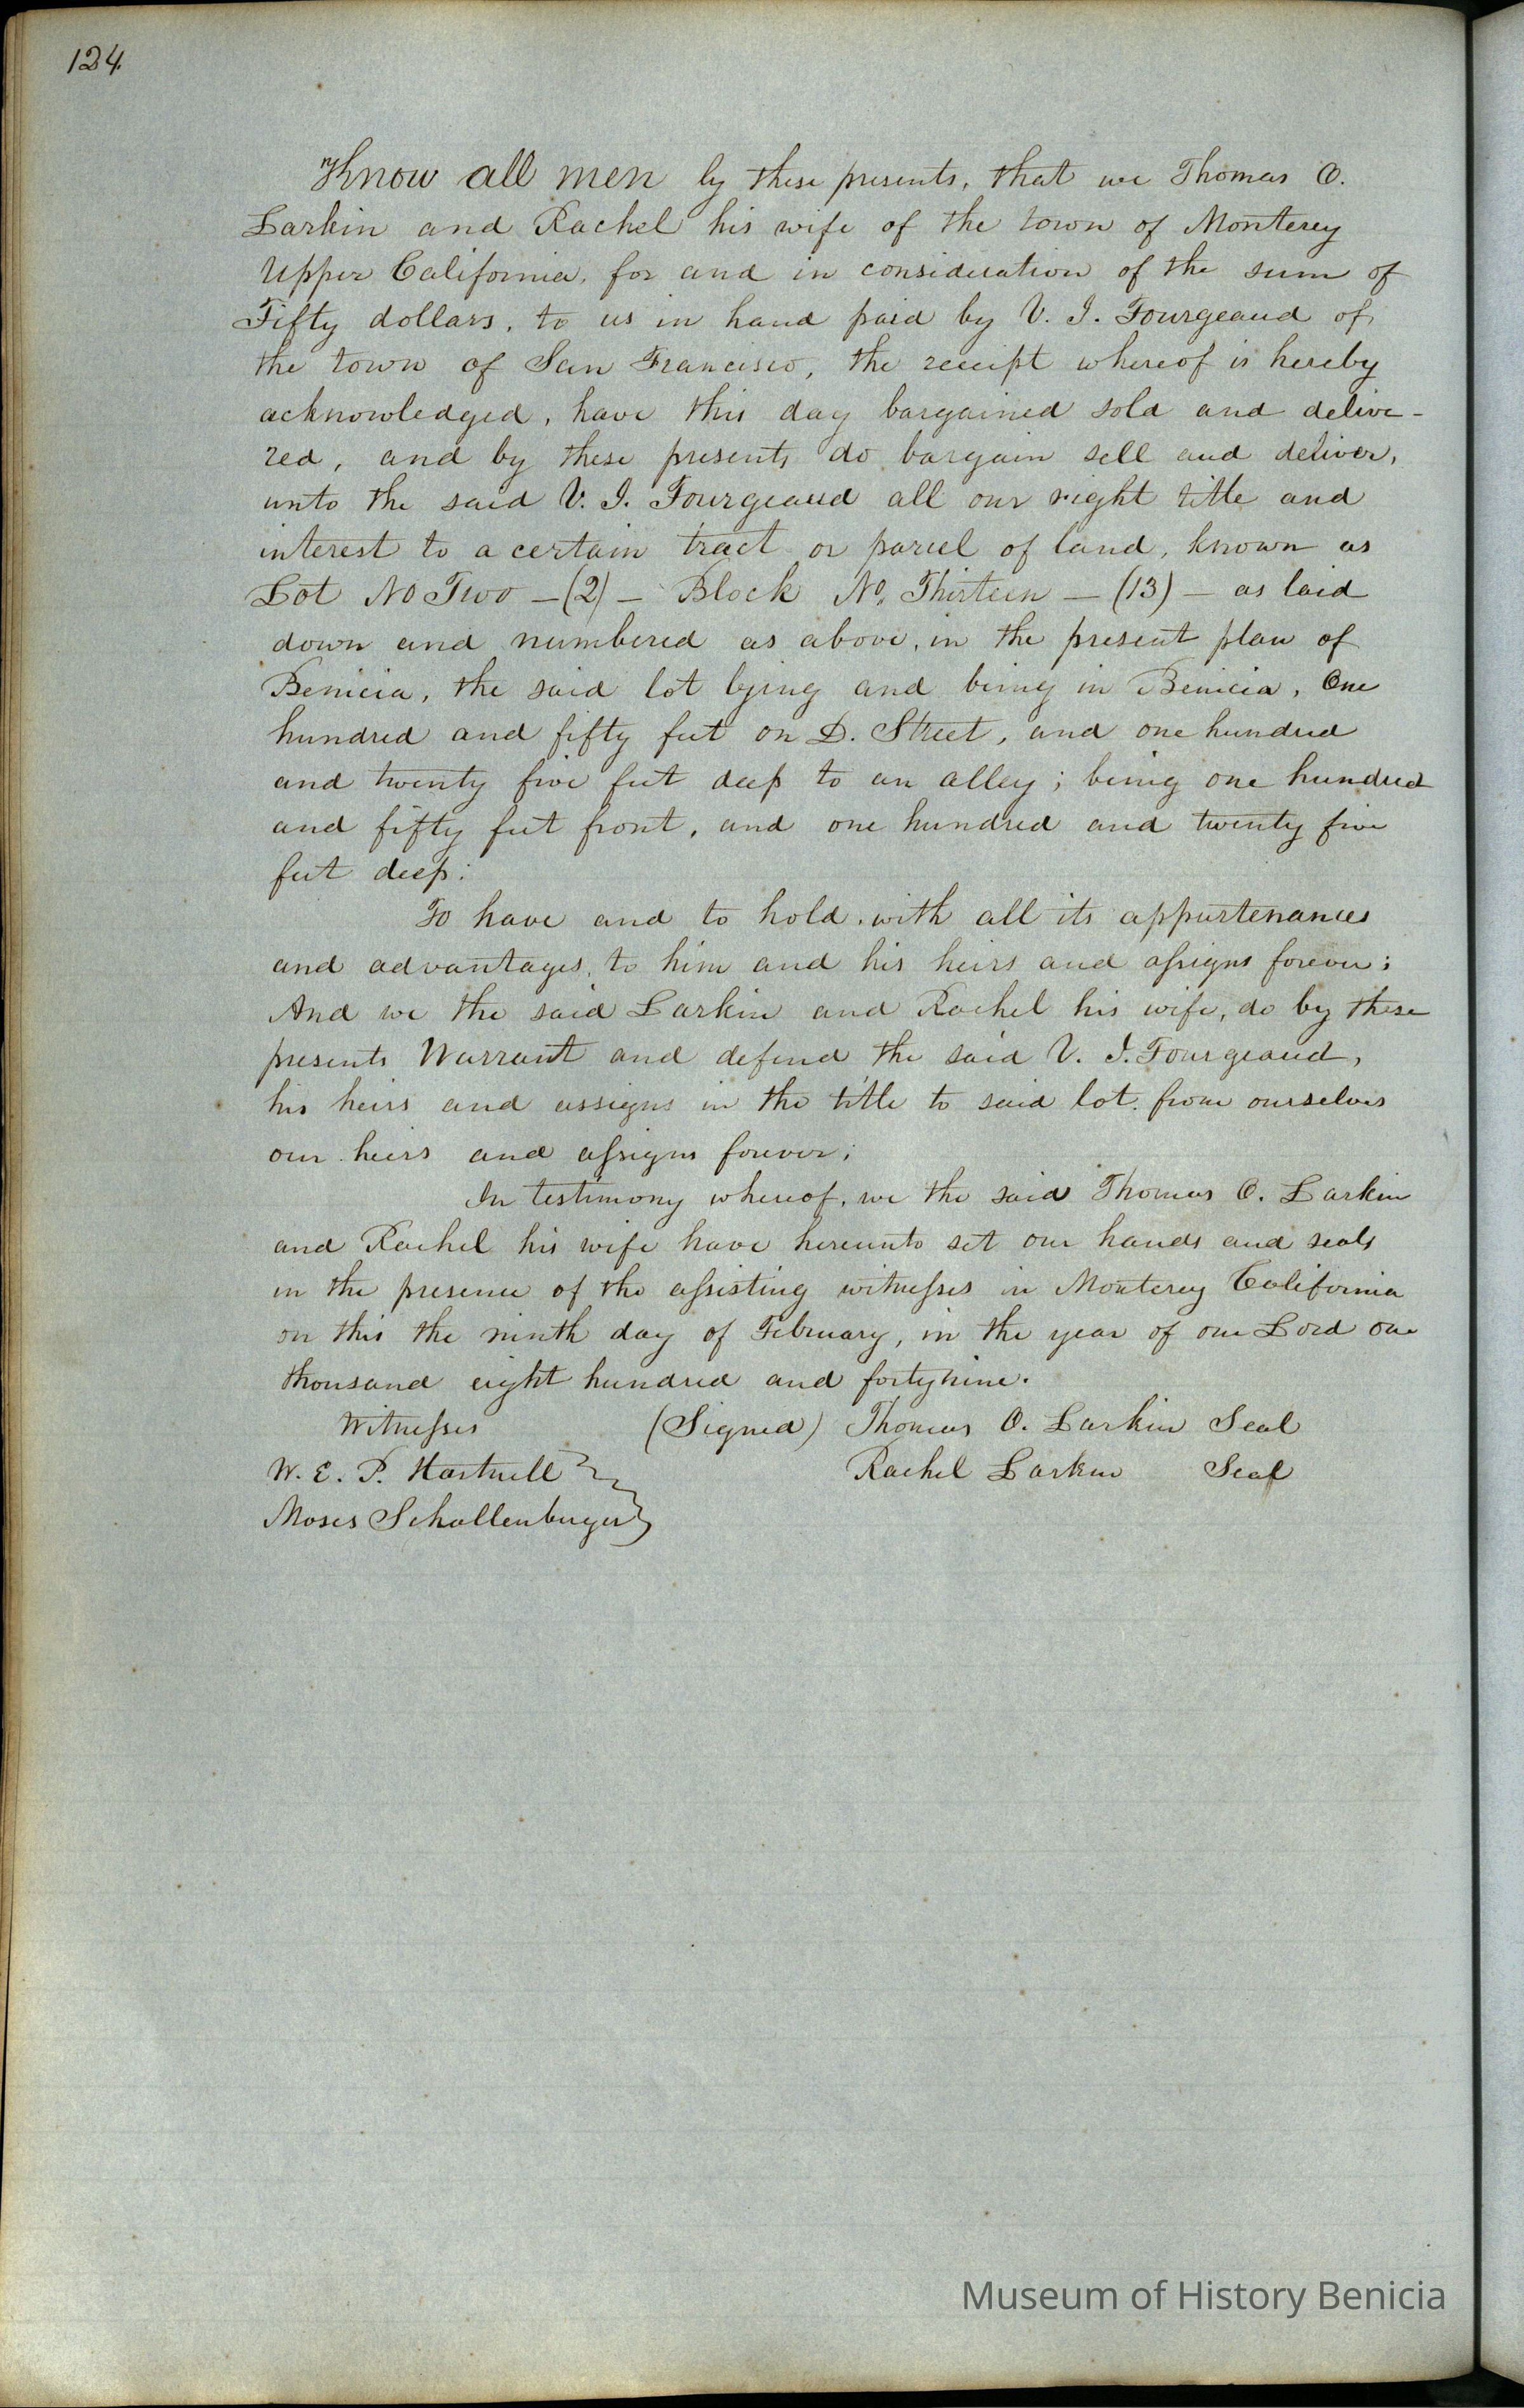 124
Know all men by these presents, that we Thomas O.
Larkin and Rachel his wife of the town of Monterey
Upper California, for and in consideration of the sum of
Fifty dollars, to us in hand paid by V. J. Fourgeaud of
the town of San Francisco, the receipt whereof is hereby
acknowledged, have this day bargained sold and delive-
red, and by these presents do bargain sell and deliver,
unto the said V. J. Fourgeaud all our right title and
interest to a certain tract or parcel of land, known as
Lot No Two - (2) - Block No. Thirteen - (13) - as laid
down and numbered as above, in the present plan of
Benicia, the said lot lying and being in Benicia, One
hundred and fifty feet on D. Street, and one hundred
and twenty five feet deep to an alley; being one hundred
and fifty feet front, and one hundred and twenty five
feet deep:
To have and to hold, with all its appurtenances
and advantages, to him and his heirs and assigns forever;
And we the said Larkin and Rachel his wife, do by these
presents Warrant and defend the said V. J. Fourgeaud,
his heirs and assigns in the title to said lot from ourselves
our heirs and assigns forever;
In testimony whereof, we the said Thomas O. Larkin
and Rachel his wife have hereunto set our hands and seals
in the presence of the assisting witnesses in Monterey California
on this the ninth day of February, in the year of our Lord one
thousand eight hundred and fortynine.
Witnesses (Signed) Thomas O. Larkin Seal
W. E. P. Hartnell Rachel Larkin Seal
Moses Schallenberger
Museum of History Benicia